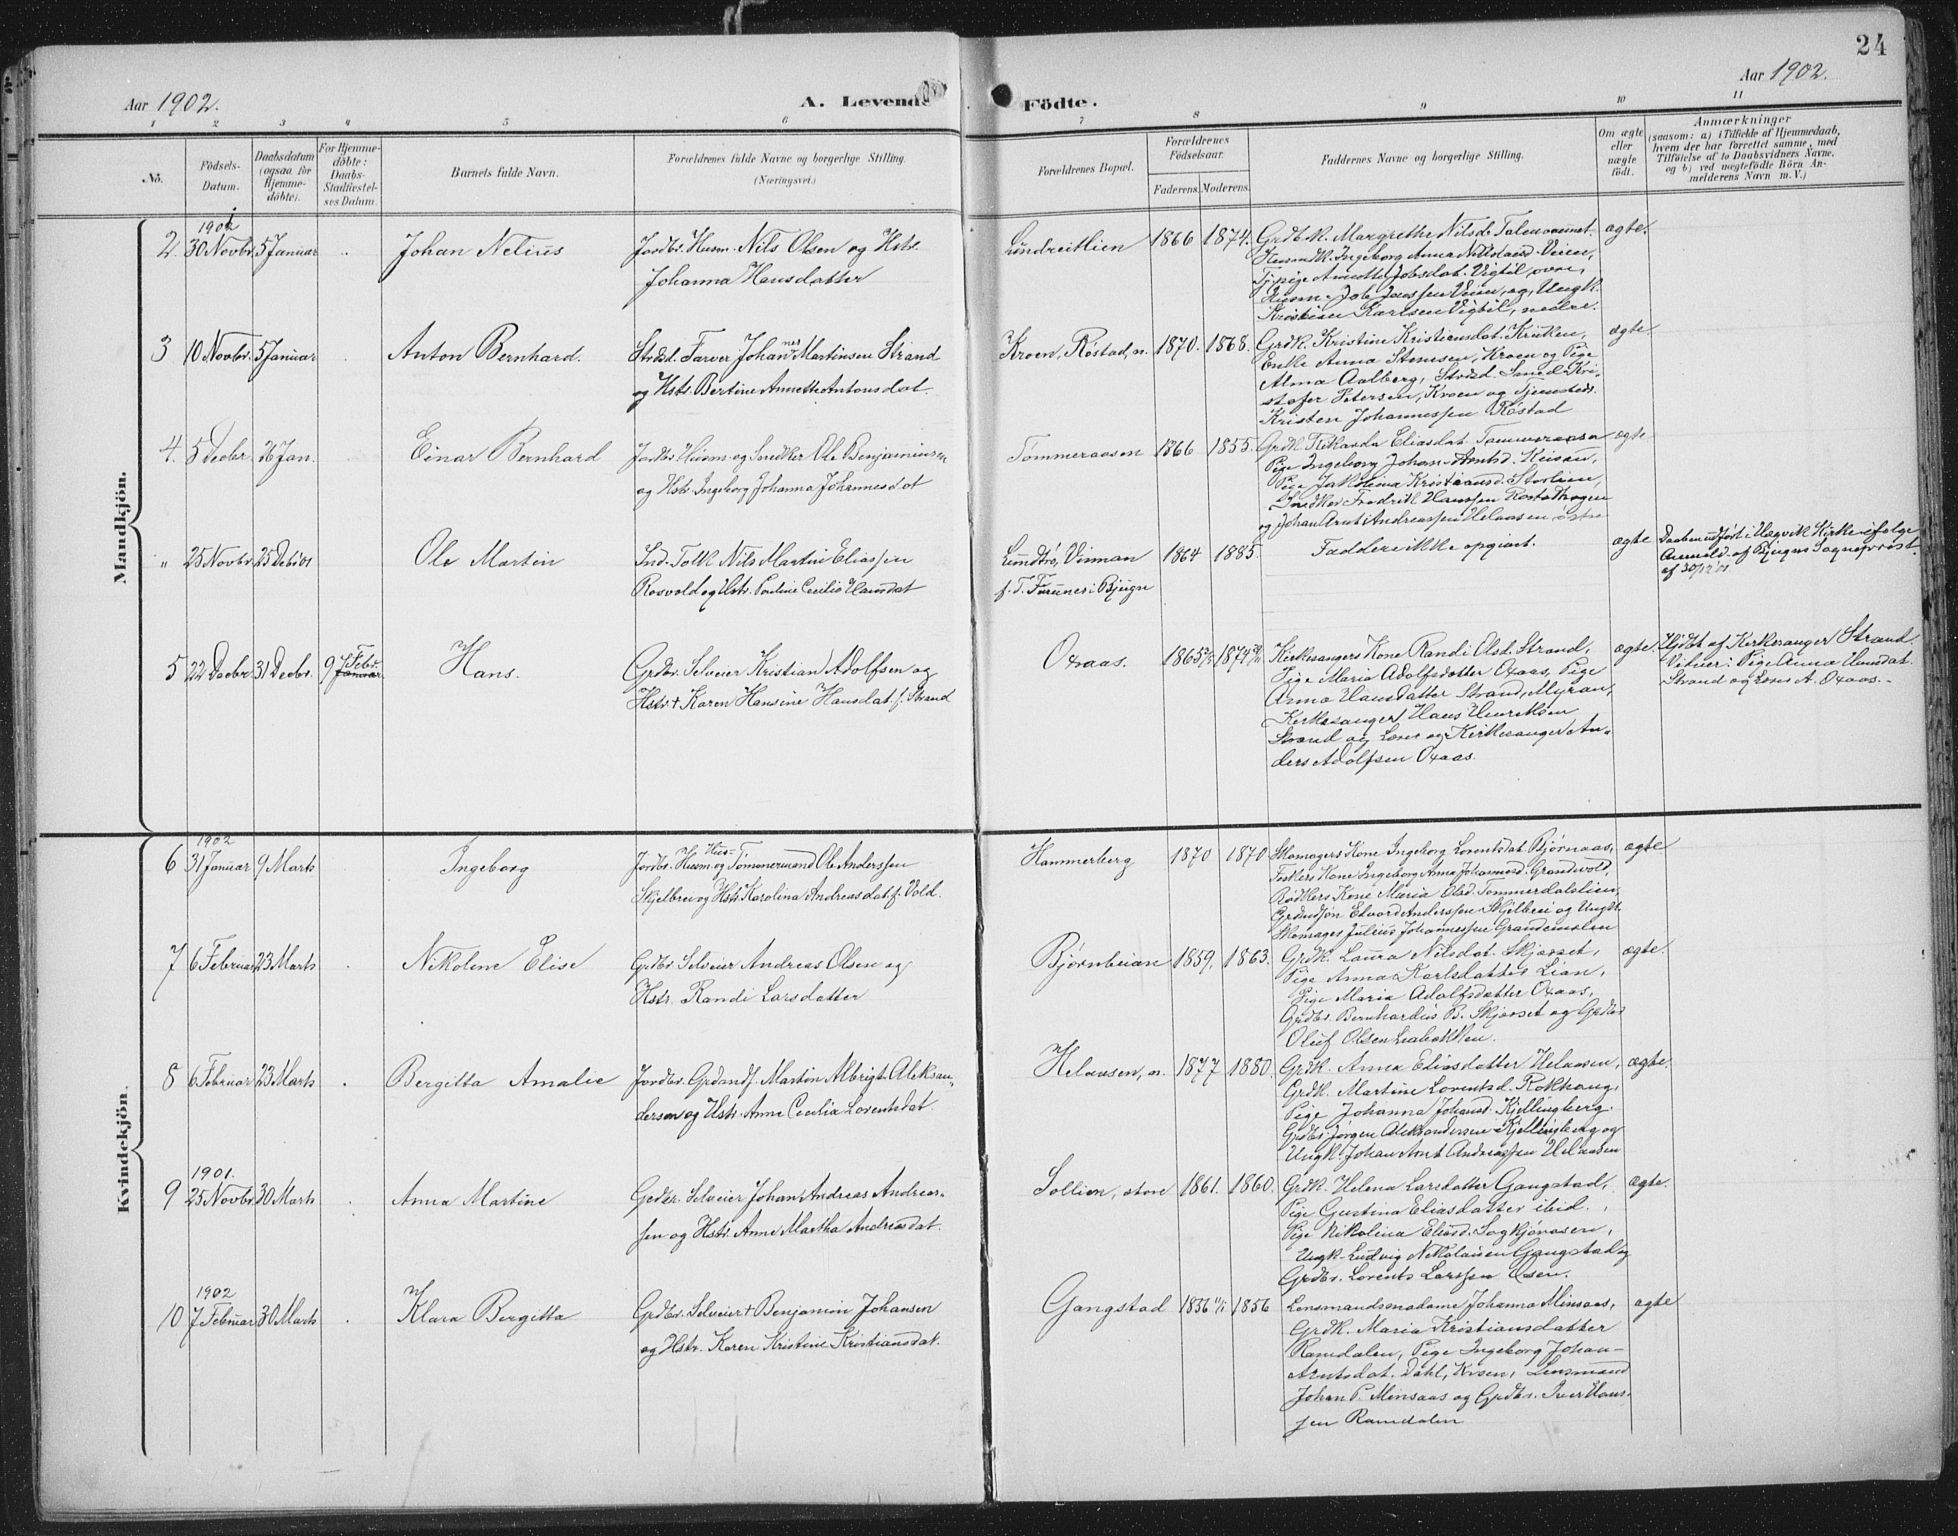 24
Aar 1902.
A. Levende Födte.
Aar 1902.
1 2 3 4 5 6 7 8 9 10 11
No.
Födsels-
Datum.
Daabsdatum
(ogsaa for
Hjemme-
döbte).
For Hjemme-
döbte:
Daabs-
Stadfæstel-
ses Datum.
Barnets fulde Navn.
Forældrenes fulde Navne og borgerlige Stilling.
(Næringsvei.)
Forældrenes Bopæl.
Forældrenes
Födselsaar.
Faderens. Moderens.
Faddernes Navne og borgerlige Stilling.
Om ægte
eller
uægte
födt.
Anmærkninger
(saasom: a) i Tilfælde af Hjemmedaab,
hvem der har forrettet samme, med
Tilföielse af to Daabsvidners Navne,
og b) ved uægtefödte Börn An-
melderens Navn m. V.)
Mandkjön.
1901
2 30 Novbr. 5 Januar
Johan Nelius
Jordbr. Husm. Nils Olsen og Hstr.
Johanna Hansdatter
1866 1874.
Grdbk. Margrethe Nilsd.
Ingeborg Anna
Vigtil, øvre,
Husm. Job Jonssen Veien, og Ungk.
Kristian Karlsen Vigtil, nedre.
ægte.
3 10 Novbr. 5 Januar
Anton Bernhard.
Strdsd. Farver Johannes Martinsen Strand
og Hstr. Bertine Annette Antonsdat.
Kroen, Röstad, n.
1870. 1868.
Grdk. Kristine Kristiansdat. Kruken,
Enke Anna Stensen, Kroen og Pige
Alma Aalberg, Strdsd. Smed Kri-
stofer Petersen, Kroen og Tjenestedr.
Kristen Johannessen Röstad
ægte
4. 5 Decbr. 26 Jan.
Einar Bernhard
Jordbr. Husm. og Snedker Ole Benjaminsen
og Hstr. Ingeborg Johanna Johannesdat
Tommeraasen
1866 1855.
Grdk. Rikarda Eliasdat. Tommeraasen
Pige Ingeborg Johan-Arntsd.
Pige Jakobina Kristiansd. Storlien,
Snedker Fredrik Hanssen
og Johan Arnt Andreassen Helaasen østre
ægte
" 25 Novbr. 25 Debr 01
Ole Martin
Ind. Tolk Nils Martin Eliassen
Rosvold og Hstr. Pauline Cecilie Hansdat
f. T. Furunes i Bjugn
1864 1885.
Faddere ikke opgivet.
ægte
Daaben udført i Hegvik Kirke ifølge
Anmeld. af Bjugns Sogneprest
af 30/12 01
5 22 Decbr. 31 Decbr. 9 Febr. Januar
Hans.
Grdbr. Selveier Kristian Adolfsen og
Hstr. † Karen Hansine Hansdat. f. Strand
Oxaas.
1865 1874
Kirkesangers Kone Randi Olsd. Strand,
Pige Maria Adolfsdatter Oxaas, Pige
Anna Hansdatter Strand, Myran,
Kirkesanger Hans Henriksen
Strand og Lærer og Kirkesanger An-
ders Adolfsen Oxaas.
ægte.
Hjdbt. af Kirkesanger Strand
Vidner: Pige Anna Hansdat.
Strand og Lærer A. Oxaas.
Kvindekjön.
1902
6 31 Januar 9 Marts
Ingeborg
Jordbr. Husm. og Hus-Tømmermand Ole Anderssen
Skjelbrei og Hstr. Karolina Andreasdat. f. Vold.
Hammerberg
1870 1870
Skomagers Kone Ingeborg Lorentsdat. Bjørnaas,
Kone Ingeborg Anna Johannesd. Grandvold,
Bødkers Kone Maria Olsd. Tommerdalslien,
Edvard Anderssen Skjelbrei og Ungk.
Skomager Julius Johannessen Grandemoen
ægte
7 6 Februar 23 Marts
Nikoline Elise
Grdbr. Selveier Andreas Olsen og
Hstr. Randi Larsdatter
Bjørnbeian
1859. 1863.
Grdk. Laura Nilsdat. Skjærset,
Pige Anna Karlsdatter Lian,
Pige Maria Adolfsdatter Oxaas,
Grdbr. Bernhardus B. Skjærset og Grdbr.
Oluf Olsen
ægte.
8 6 Februar 23 Marts
Bergitta Amalie
Jordbr. Grdmdf. Martin Albrigt Aleksan-
dersen og Hstr. Anne Cecilia Lorentsdat.
Helaasen, n.
1877 1880.
Grdk. Anna Eliasdatter Helaasen,
Grdk. Martine Lorentsd. Rokhaug,
Pige Johanna Johansd. Kjellingberg.
Grdbr. Jørgen Aleksandersen Kjellingberg og
Ungk. Johan Arnt Andreassen Helaasen
ægte.
1901.
9 25 Novbr. 30 Marts
Anna Martine
Grdbr. Selveier Johan Andreas Andreas-
sen og Hstr. Anne Martha Andreasdat.
Sollien, store
1861. 1860.
Grdk. Helena Larsdatter Gangstad,
Pige Gustina Eliasdatter ibid.,
Pige Nikolina Eliasd.
Ungk. Ludvig Nikolaisen Gangstad og
Grdbr. Lorents Larssen Osen.
ægte.
1902
10 7 Februar 30 Marts
Klara Bergitta
Grdbr. Selveier † Benjamin Johansen
og Hstr. Karen Kristine Kristiansdat.
Gangstad
1836 1856
Lensmandsmadame Johanna Minsaas,
Grdk. Maria Kristiansdatter
Ramdalen, Pige Ingeborg Johan-
Arntsdat. Dahl, Kroen, Lensmand
Johan P. Minsaas og Grdbr. Iver Hans-
sen Ramdalen
ægte